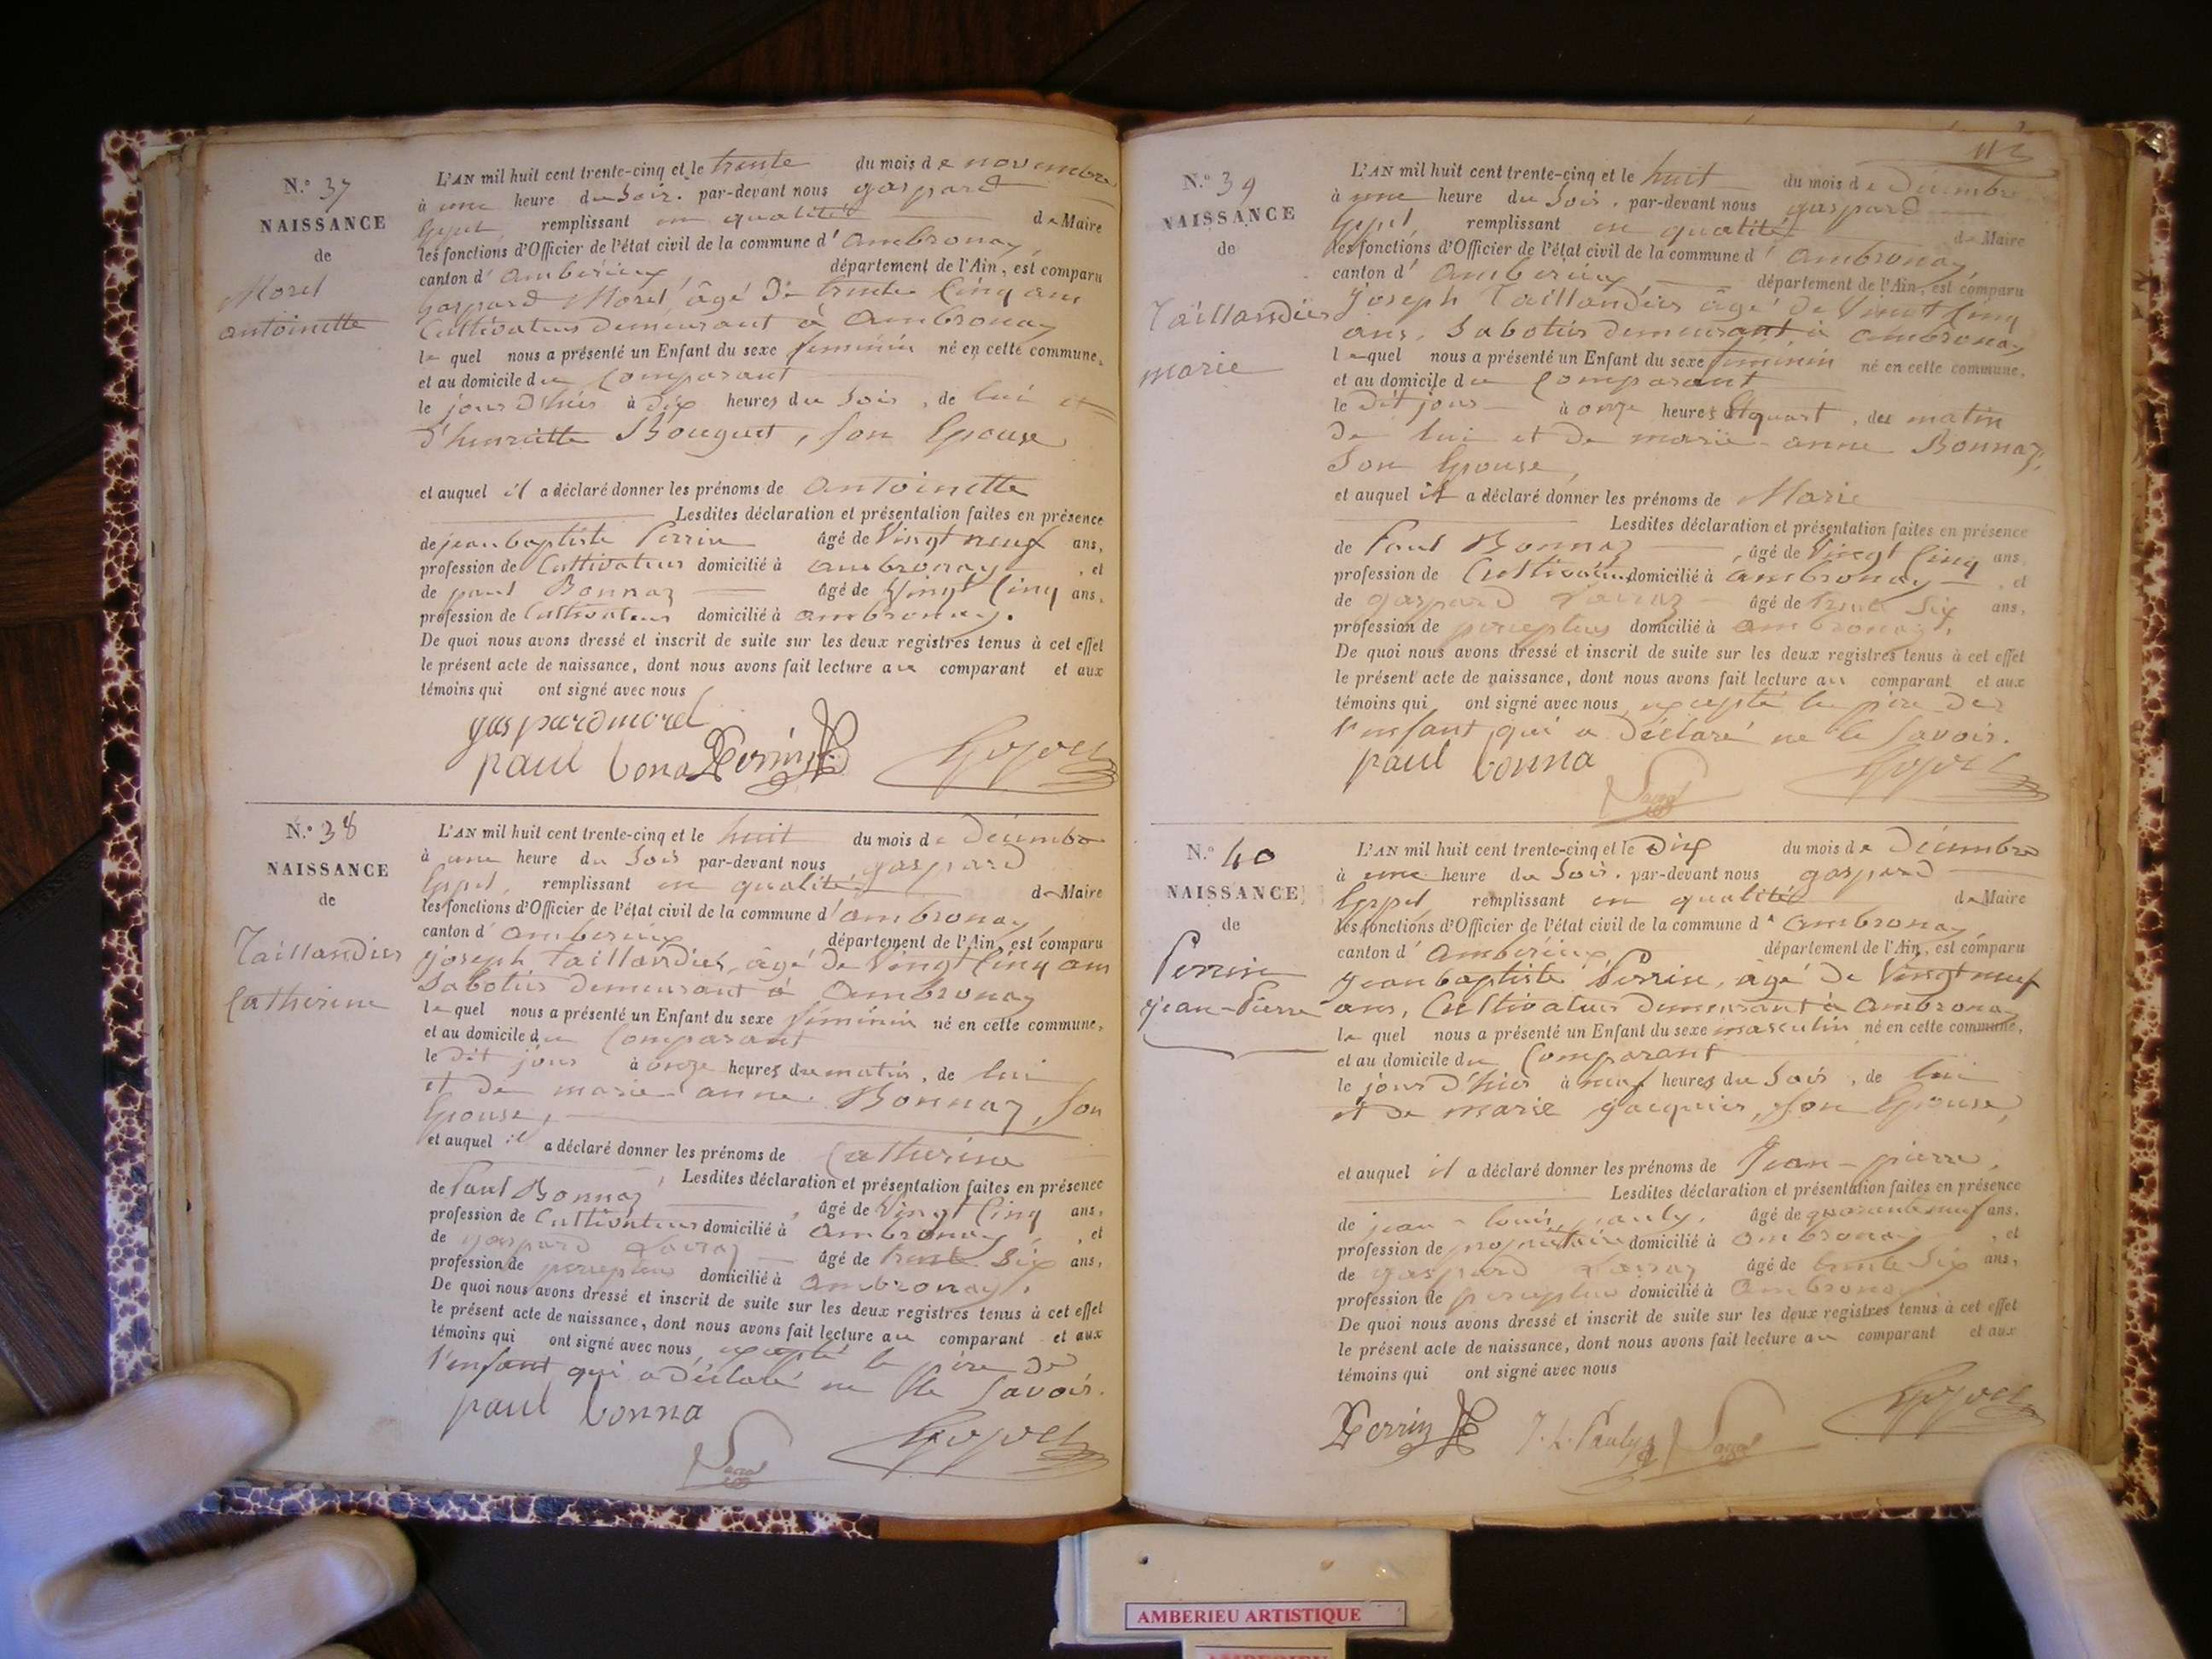 N.º 37
NAISSANCE
de
Morel
antoinette
L'AN mil huit cent trente-cinq et le trente du mois de novembre
à une heure du Soir. par-devant nous gaspard
remplissant en qualité de Maire
les fonctions d'Officier de l'état civil de la commune d'ambronay,
canton d'amberieux département de l'Ain, est comparu
Gaspard Morel, âgé de trente Cinq ans
Cultivateur demeurant à Ambronay
le quel nous a présenté un Enfant du sexe feminin né en cette commune,
et au domicile du Comparant
le jour d'hier à dix heures du Soir, de lui et
d'henriette Bouguet, son Epouse
et auquel il a déclaré donner les prénoms de Antoinette
Lesdites déclaration et présentation faites en présence
de jean baptiste Perrin âgé de Vingt neuf ans,
profession de Cultivateur domicilié à ambronay, et
de paul Bonnaz âgé de Vingt Cinq ans,
profession de Cultivateur domicilié à ambronay.
De quoi nous avons dressé et inscrit de suite sur les deux registres tenus à cet effet
le présent acte de naissance, dont nous avons fait lecture au comparant et aux
témoins qui ont signé avec nous
gaspard morel
paul bona Perrin
N.º 38
NAISSANCE
de
Taillandier
Catherine
L'AN mil huit cent trente-cinq et le huit du mois de Décembre
à une heure du Soir par-devant nous gaspard
remplissant en qualité de Maire
les fonctions d'Officier de l'état civil de la commune d'ambronay,
canton d'amberieux département de l'Ain, est comparu
joseph taillandier, âgé de Vingt Cinq ans
Sabotier demeurant à Ambronay
le quel nous a présenté un Enfant du sexe féminin né en cette commune,
et au domicile du Comparant
le dit jour à onze heures du matin, de lui
et de marie anne Bonnaz, son
Epouse,
et auquel il a déclaré donner les prénoms de Catherine
Lesdites déclaration et présentation faites en présence
de Paul Bonnaz, âgé de Vingt Cinq ans,
profession de Cultivateur domicilié à Ambronay, et
de gaspard âgé de trente Six ans,
profession de percepteur domicilié à Ambronay.
De quoi nous avons dressé et inscrit de suite sur les deux registres tenus à cet effet
le présent acte de naissance, dont nous avons fait lecture au comparant et aux
témoins qui ont signé avec nous excepté le père de
l'enfant qui a déclaré ne le savoir.
paul bonna
N.º 39
NAISSANCE
de
Taillandier
marie
L'AN mil huit cent trente-cinq et le huit du mois de Décembre
à une heure du Soir. par-devant nous gaspard
remplissant en qualité de Maire
les fonctions d'Officier de l'état civil de la commune d'ambronay
canton d'amberieux département de l'Ain, est comparu
joseph Taillandier âgé de Vingt Cinq
ans, Sabotier demeurant à Ambronay
lequel nous a présenté un Enfant du sexe feminin né en cette commune,
et au domicile du Comparant
le dit jour à onze heures et quart, du matin
de lui et de marie-anne Bonnaz,
Son Epouse,
et auquel il a déclaré donner les prénoms de Marie
Lesdites déclaration et présentation faites en présence
de Paul Bonnaz, âgé de Vingt Cinq ans
profession de Cultivateur domicilié à ambronay, et
de gaspard âgé de trente Six ans,
profession de percepteur domicilié à Ambronay,
De quoi nous avons dressé et inscrit de suite sur les deux registres tenus à cet effet
le présent acte de naissance, dont nous avons fait lecture au comparant et aux
témoins qui ont signé avec nous excepté le père de
l'enfant qui a déclaré ne le savoir.
paul bonna
N.º 40
NAISSANCE
de
Perrin
Jean-Pierre
L'AN mil huit cent trente-cinq et le Dix du mois de Décembre
à une heure du Soir. par-devant nous gaspard
remplissant en qualité de Maire
les fonctions d'Officier de l'état civil de la commune d'Ambronay
canton d'Amberieux département de l'Ain, est comparu
Jean baptiste Perrin, âgé de Vingt neuf
ans, Cultivateur demeurant à Ambronay
le quel nous a présenté un Enfant du sexe masculin né en cette commune,
et au domicile du Comparant
le jour d'hier à neuf heures du Soir, de lui
et de marie Jacquier, son Epouse,
et auquel il a déclaré donner les prénoms de Jean-pierre,
Lesdites déclaration et présentation faites en présence
de jean-louis pauly, âgé de quarante neuf ans,
profession de propriétaire domicilié à Ambronay, et
de gaspard âgé de trente Six ans,
profession de percepteur domicilié à Ambronay.
De quoi nous avons dressé et inscrit de suite sur les deux registres tenus à cet effet
le présent acte de naissance, dont nous avons fait lecture au comparant et aux
témoins qui ont signé avec nous
Perrin J. L. Pauly
AMBERIEU ARTISTIQUE